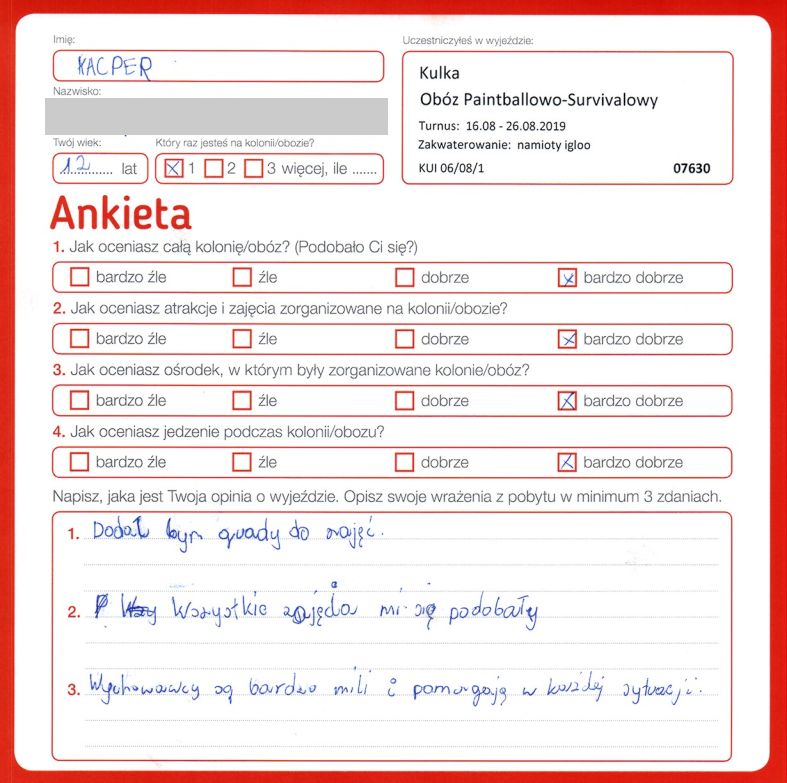 Imię:
KACPER
Nazwisko:
Twój wiek:
12 lat
Który raz jesteś na kolonii/obozie?
1 2 3 więcej, ile .......
Uczestniczyłeś w wyjeździe:
Kulka
Obóz Paintballowo-Survivalowy
Turnus: 16.08 - 26.08.2019
Zakwaterowanie: namioty igloo
KUI 06/08/1 07630
Ankieta
1. Jak oceniasz całą kolonię/obóz? (Podobało Ci się?)
bardzo źle źle dobrze bardzo dobrze
2. Jak oceniasz atrakcje i zajęcia zorganizowane na kolonii/obozie?
bardzo źle źle dobrze bardzo dobrze
3. Jak oceniasz ośrodek, w którym były zorganizowane kolonie/obóz?
bardzo źle źle dobrze bardzo dobrze
4. Jak oceniasz jedzenie podczas kolonii/obozu?
bardzo źle źle dobrze bardzo dobrze
Napisz, jaka jest Twoja opinia o wyjeździe. Opisz swoje wrażenia z pobytu w minimum 3 zdaniach.
1. Dodał bym quady do zajęć.
2. Wszystkie zajęcia mi się podobały
3. Wychowawcy są bardzo mili i pomagają w każdej sytuacji.